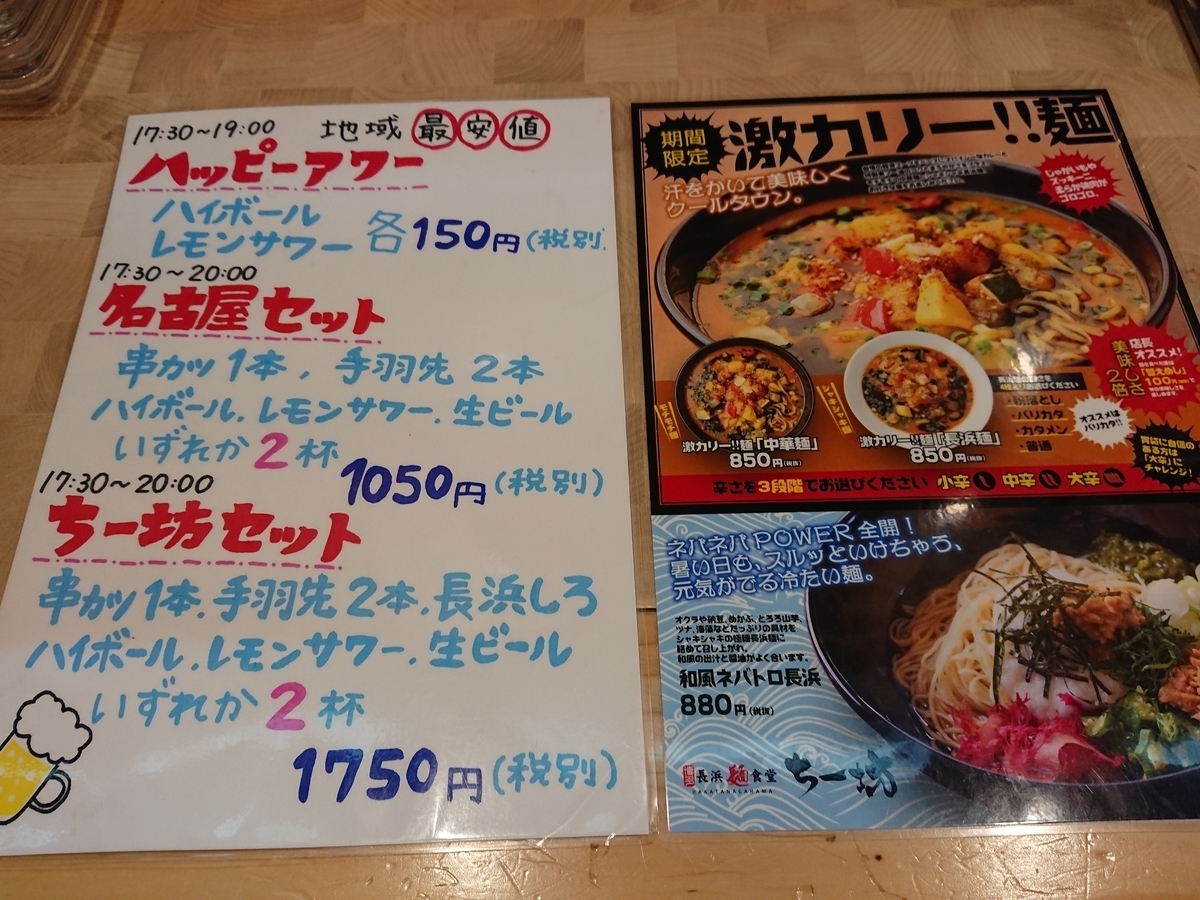 17:30~19:00 地域最安値
ハッピーアワー
ハイボール
レモンサワー 各150円(税別)
17:30~20:00
名古屋セット
串カツ1本, 手羽先2本
ハイボール.レモンサワー.生ビール
いずれか2杯
1050円(税別)
17:30~20:00
ちー坊セット
串カツ1本.手羽先2本.長浜しろ
ハイボール.レモンサワー.生ビール
いずれか2杯
1750円(税別)
期間
限定
激カリー!!麺
汗をかいて美味しく
クールダウン。
じゃがいもや
ズッキーニ、
柔らか鶏肉が
ゴロゴロ。
店長
オススメ!
美味しさ
2倍
「替えめし」
100円
・粉落とし
・バリカタ
・カタメン
・普通
オススメは
バリカタ!!
激カリー!!麺「中華麺」
850円(税抜)
激カリー!!麺「長浜麺」
850円(税抜)
胃袋に自信の
ある方は
「大辛」に
チャレンジ!
辛さを3段階でお選びください 小辛 中辛 大辛
ネバネバPOWER全開!
暑い日も、スルッといけちゃう、
元気がでる冷たい麺。
オクラや納豆、めかぶ、とろろ山芋、
ツナ、海藻などたっぷりの具材を
シャキシャキの極細長浜麺に
絡めて召し上がれ。
和風の出汁と醤油がよく合います。
和風ネバトロ長浜
880円(税抜)
博多 長浜麺食堂 ちー坊
HAKATANAGAHAMA